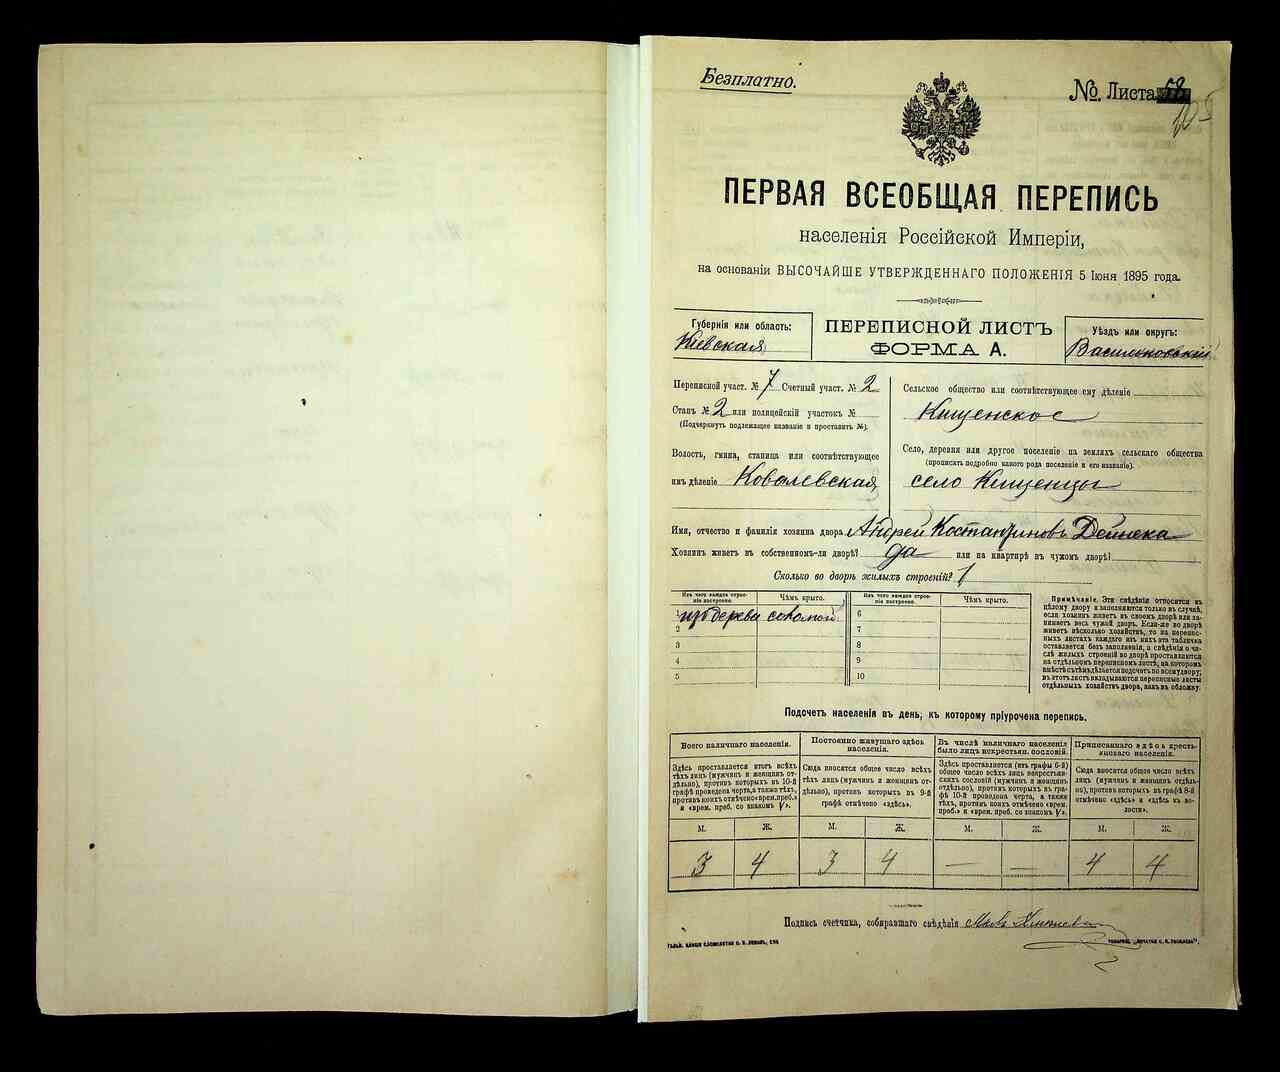 Безплатно.
№ Листа 58
ПЕРВАЯ ВСЕОБЩАЯ ПЕРЕПИСЬ
населенія Россійской Имперіи,
на основаніи ВЫСОЧАЙШЕ УТВЕРЖДЕННАГО ПОЛОЖЕНІЯ 5 Іюня 1895 года.
Губернія или область:
Кіевская
ПЕРЕПИСНОЙ ЛИСТЪ
ФОРМА А.
Уѣздъ или округъ:
Васильковскій
Переписной участ. № 7 Счетный участ. № 2
Станъ № 2 или полицейскій участокъ №
(Подчеркнуть подлежащее названіе и проставить №).
Волость, гмина, станица или соотвѣтствующее
имъ дѣленіе Ковалевская
Сельское общество или соотвѣтствующее ему дѣленіе
Кищенское
Село, деревня или другое поселеніе на земляхъ сельскаго общества
(прописать подробно какого рода поселеніе и его названіе).
село Кищенцы
Имя, отчество и фамилія хозяина двора Андрей Костантиновъ Дейнека
Хозяинъ живетъ въ собственномъ-ли дворѣ? да или на квартирѣ въ чужомъ дворѣ?
Сколько во дворѣ жилыхъ строеній? 1
Изъ чего каждое строе-
ніе построено.
Чѣмъ крыто.
Изъ чего каждое строе-
ніе построено.
Чѣмъ крыто.
изъ дерева соломой
2
3
4
5
6
7
8
9
10
Примѣчаніе. Эти свѣдѣнія относятся къ
цѣлому двору и заполняются только въ случаѣ,
если хозяинъ живетъ въ своемъ дворѣ или за-
нимаетъ весь чужой дворъ. Если-же во дворѣ
живетъ нѣсколько хозяйствъ, то на перепис-
ныхъ листахъ каждаго изъ нихъ эта табличка
оставляется безъ заполненія, а свѣдѣнія о чи-
слѣ жилыхъ строеній во дворѣ проставляются
на отдѣльномъ переписномъ листѣ, на которомъ
вмѣстѣ съ тѣмъ дѣлается подсчетъ по всему двору;
въ этотъ листъ вкладываются переписные листы
отдѣльныхъ хозяйствъ двора, какъ въ обложку.
Подсчетъ населенія въ день, къ которому пріурочена перепись.
Всего наличнаго населенія.
Постоянно живущаго здѣсь
населенія.
Въ числѣ наличнаго населенія
было лицъ некрестьян. сословій.
Приписаннаго здѣсь кресть-
янскаго населенія.
Здѣсь проставляется итогъ всѣхъ
тѣхъ лицъ (мужчинъ и женщинъ от-
дѣльно), противъ которыхъ въ 10-й
графѣ проведена черта, а также тѣхъ,
противъ коихъ отмѣчено «врем. преб.»
и «врем. преб. со знакомъ V».
Сюда вносятся общее число всѣхъ
тѣхъ лицъ (мужчинъ и женщинъ от-
дѣльно), противъ которыхъ въ 9-й
графѣ отмѣчено «здѣсь».
Здѣсь проставляется (изъ графы 6-й)
общее число всѣхъ лицъ некрестьян-
скихъ сословій (мужчинъ и женщинъ
отдѣльно), противъ которыхъ въ гра-
фѣ 10-й проведена черта, а также
тѣхъ, противъ коихъ отмѣчено «врем.
преб.» и «врем. преб. со знакомъ V».
Сюда вносятся общее число всѣхъ
лицъ (мужчинъ и женщинъ отдѣль-
но), противъ которыхъ въ графѣ 8-й
отмѣчено «здѣсь» и «здѣсь къ во-
лости».
М. Ж. М. Ж. М. Ж. М. Ж.
3 4 3 4 — — 4 4
Подпись счетчика, собиравшаго свѣдѣнія